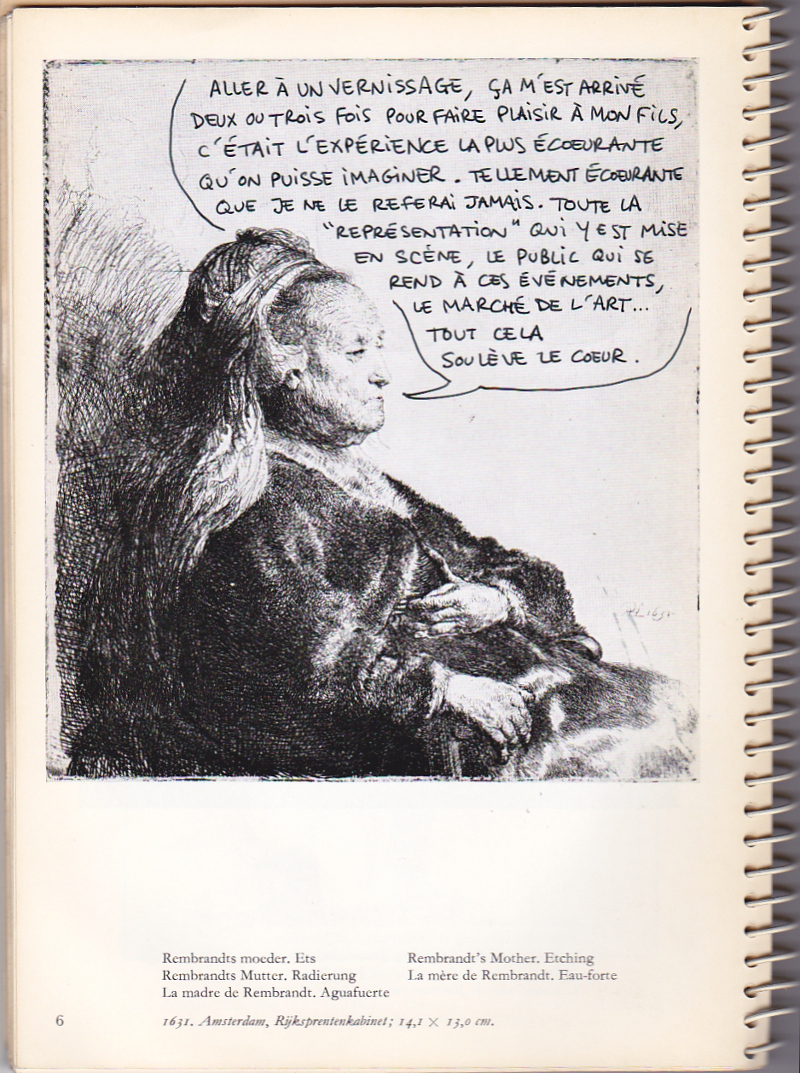 ALLER À UN VERNISSAGE, ÇA M'EST ARRIVÉ
DEUX OU TROIS FOIS POUR FAIRE PLAISIR À MON FILS,
C'ÉTAIT L'EXPÉRIENCE LA PLUS ÉCOEURANTE
QU'ON PUISSE IMAGINER. TELLEMENT ÉCOEURANTE
QUE JE NE LE REFERAI JAMAIS. TOUTE LA
"REPRÉSENTATION" QUI Y EST MISE
EN SCÈNE, LE PUBLIC QUI SE
REND À CES ÉVÉNEMENTS,
LE MARCHÉ DE L'ART...
TOUT CELA
SOULÈVE LE COEUR.
Rembrandts moeder. Ets
Rembrandts Mutter. Radierung
La madre de Rembrandt. Aguafuerte
Rembrandt's Mother. Etching
La mère de Rembrandt. Eau-forte
6
1631. Amsterdam, Rijksprentenkabinet; 14,1 × 13,0 cm.